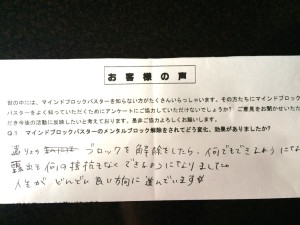 お客様の声
世の中には、マインドブロックバスターを知らない方がたくさんいらっしゃいます。その方たちにマインドブロック
バスターをよく知っていただくためにアンケートにご協力していただけないでしょうか? ご意見をお聞かせいただ
だき今後の活動に反映したいと考えております。是非ご協力よろしくお願いします。
Q.1 マインドブロックバスターのメンタルブロック解除をされてどう変化、効果がありましたか?
ブロックを解除をしたら、何でもできるようになり
露出も何の抵抗もなくできるようになりました。
人生がどんどん良い方向に進んでいます